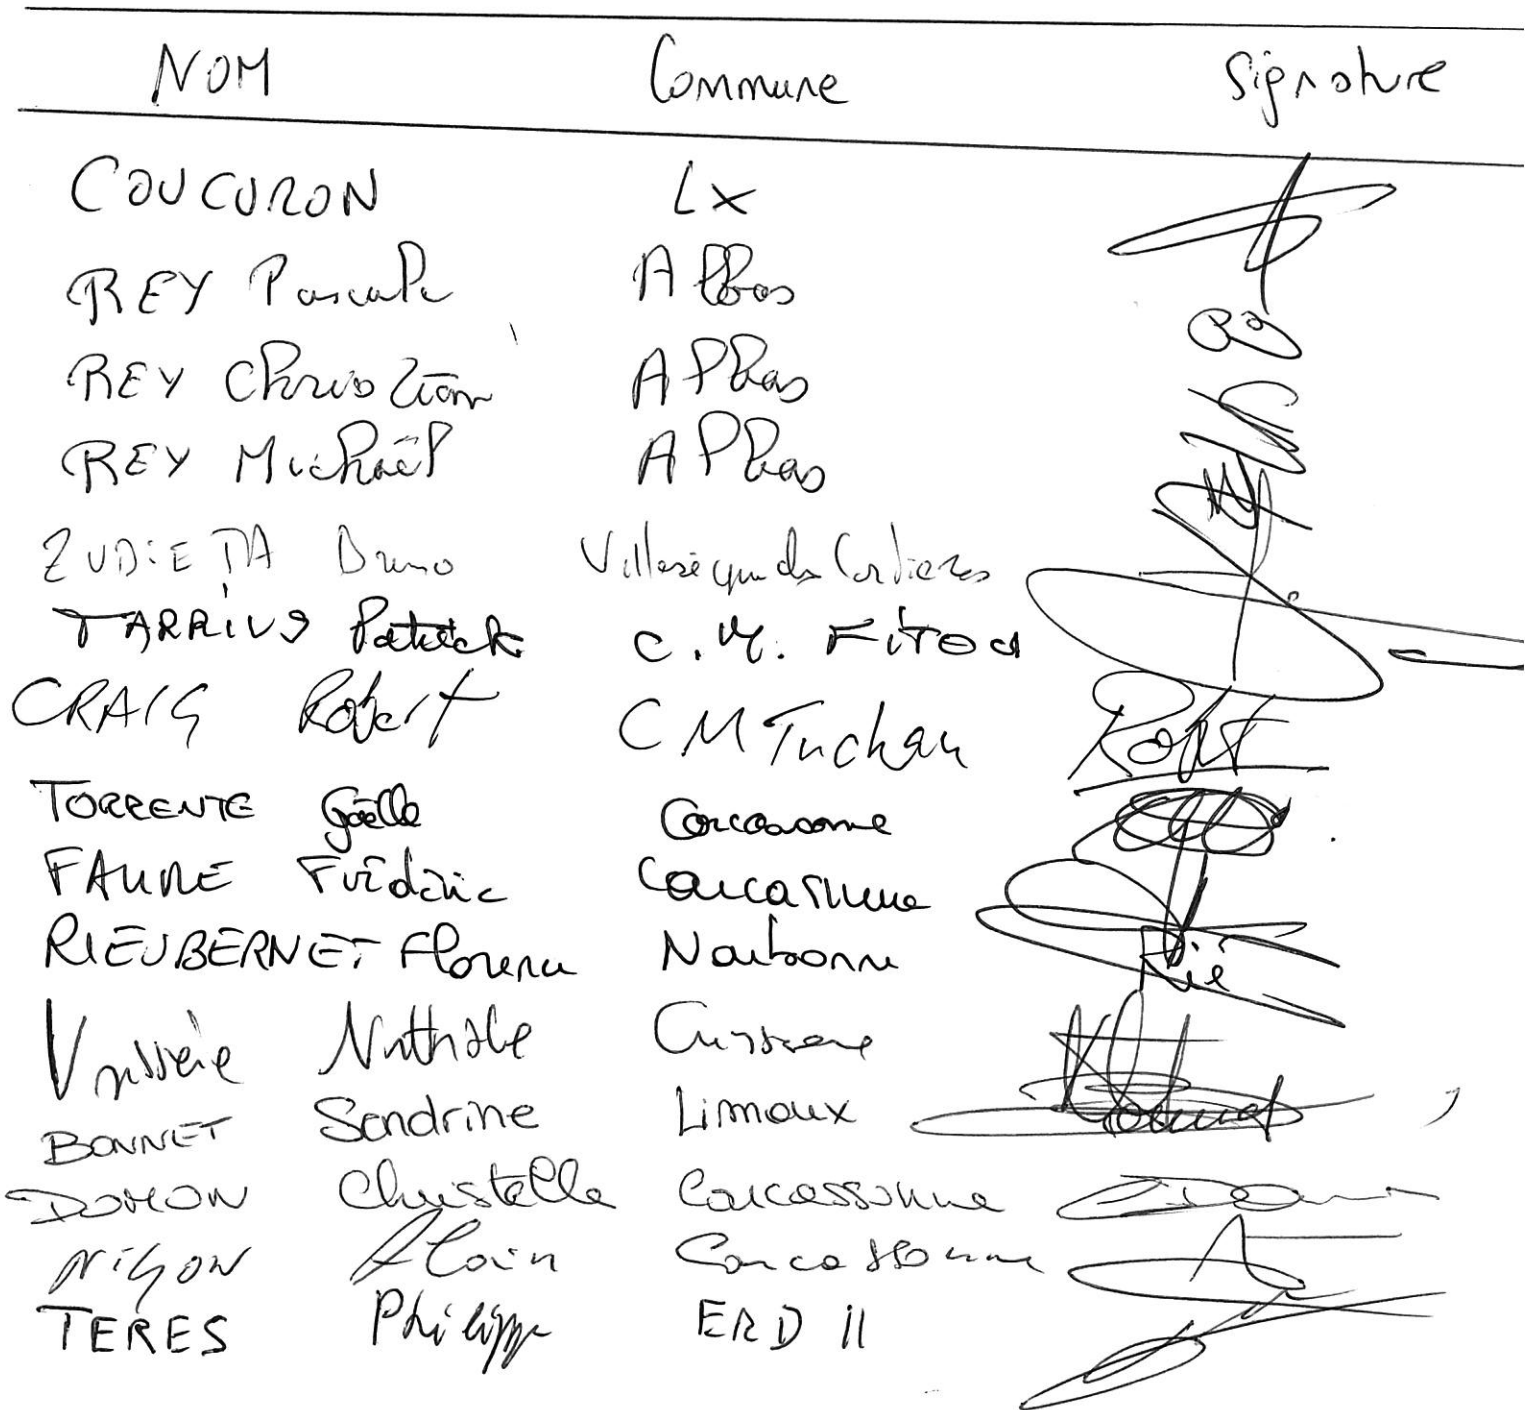 NOM Commune Signature
COUCURON Lx
REY Pascale Albas
REY Christian Albas
REY Michaël Albas
ZUDIETA Bruno Villesèque des Corbières
TARRIUS Patrick C.M. FITOU
CRAIG Robert CM Tuchan
TORRENTE Gaëlle Carcassonne
FAURE Frédéric Carcassonne
RIEUBERNET Florence Narbonne Rie
Vaissière Nathalie
BONNET Sandrine Limoux
DOMON Christelle Carcassonne
Alain Carcassonne
TERES Philippe ERD 11